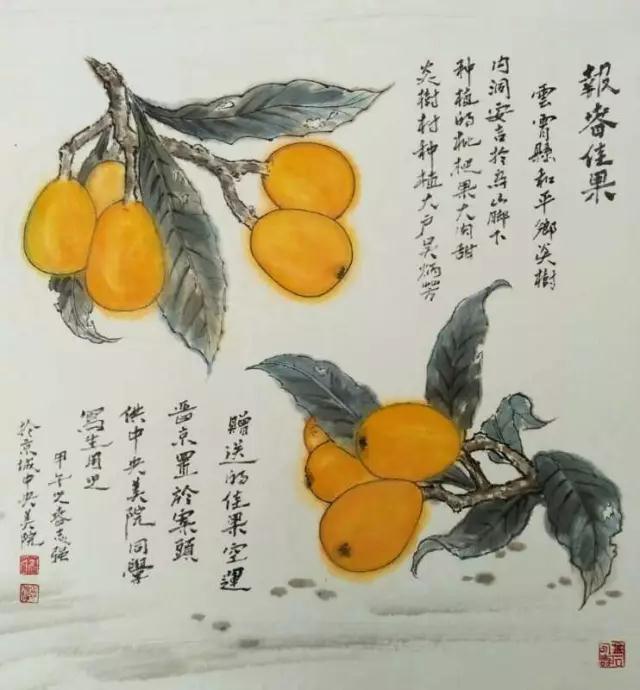 報春佳果
雲霄縣和平鄉炎樹
内洞 於烏山脚下
种植的枇杷果大肉甜
炎樹村种植大户吴炳芳
贈送的佳果空運
晋京置於案頭
供中央美院同學
寫生用之
甲午之春志强
於京城中央美院